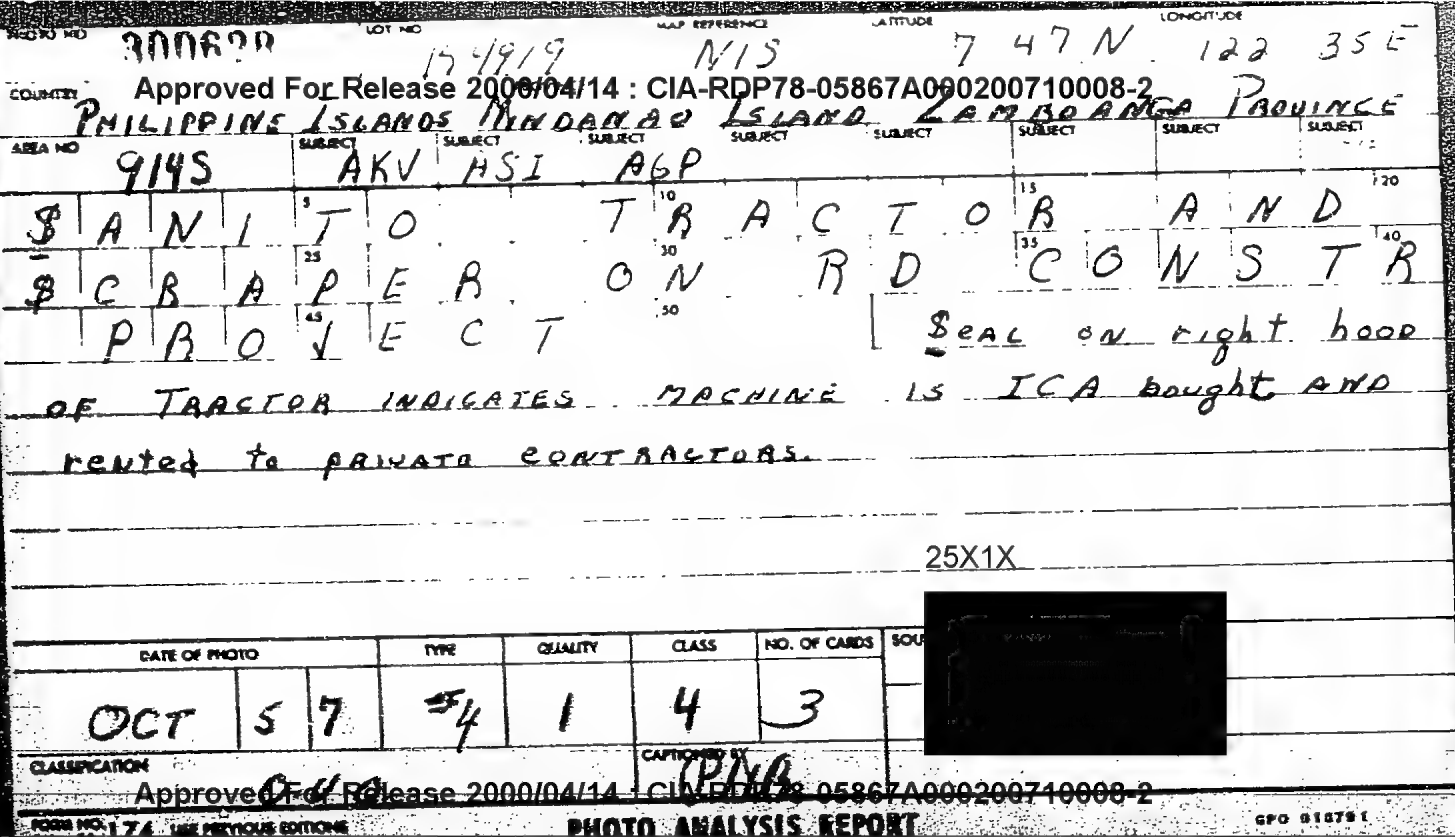 PHOTO NO 300620 LOT NO 154919 MAP REFERENCE NIS LATITUDE 7 47 N LONGITUDE 122 35 E
Approved For Release 2000/04/14 : CIA-RDP78-05867A000200710008-2
COUNTRY PHILIPPINE ISLANDS MINDANAO ISLAND ZAMBOANGA PROVINCE
AREA NO 914S SUBJECT AKV SUBJECT HSI SUBJECT AGP SUBJECT SUBJECT SUBJECT SUBJECT SUBJECT
SANITO TRACTOR AND
5 10 15 20
SCRAPER ON RD CONSTR
25 30 35 40
PROJECT
45 50
Seal on right hood
OF TRACTOR INDICATES MACHINE IS ICA bought AND
rented to private contractors.
25X1X
DATE OF PHOTO TYPE QUALITY CLASS NO. OF CARDS SOU
OCT 5 7 4 1 4 3
CLASSIFICATION CAPTIONED BY
Approved For Release 2000/04/14 : CIA-RDP78-05867A000200710008-2
FORM NO. 174 USE PREVIOUS EDITIONS PHOTO ANALYSIS REPORT GPO